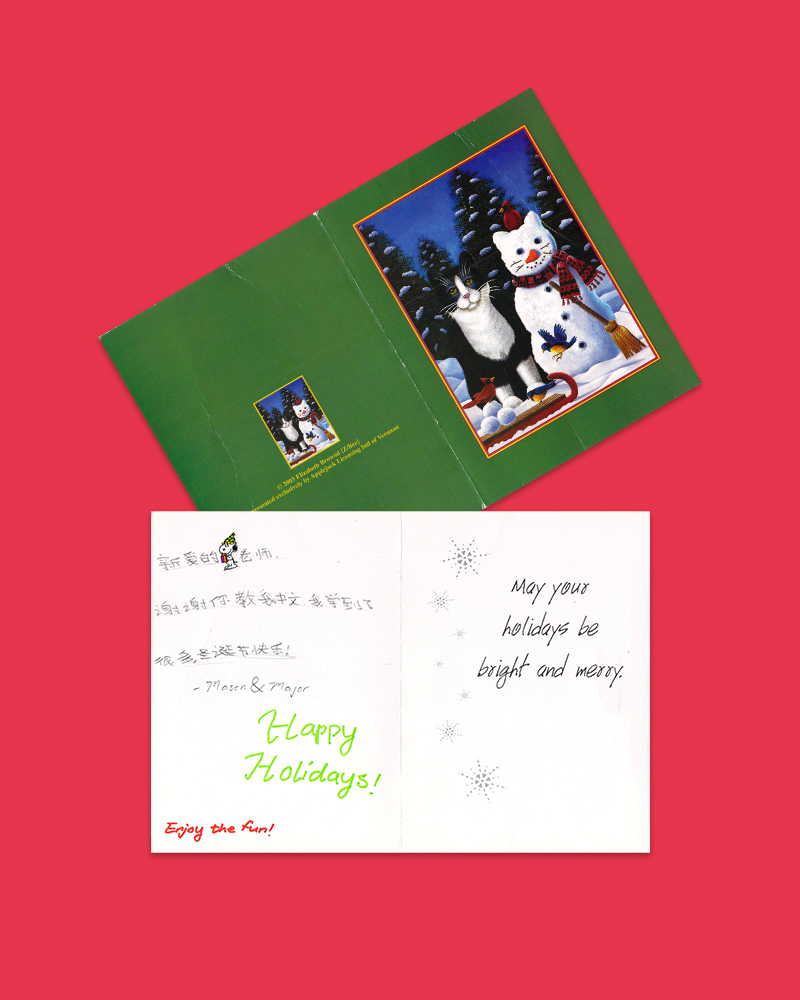 © 2003 Elizabeth Brownd (Z/Bee)
presented exclusively by Applejack Licensing Intl of Vermont
新爱的老师，
谢谢你教我中文.我学到了
很多,圣诞节快乐!
- Mason & Major
Happy
Holidays!
Enjoy the fun!
May your
holidays be
bright and merry.